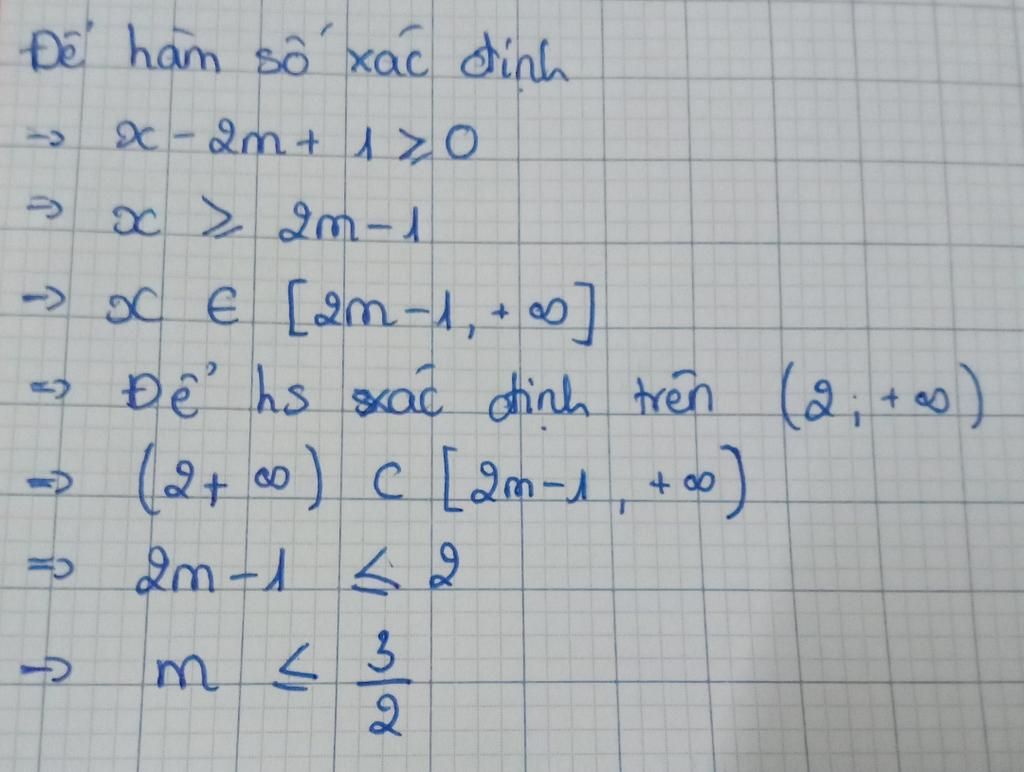 Để hàm số xác định
=> x - 2m + 1 ≥ 0
=> x ≥ 2m - 1
=> x ∈ [2m - 1, + ∞]
=> Để hs xác định trên (2; + ∞)
=> (2 + ∞) ⊂ [2m - 1, + ∞)
=> 2m - 1 ≤ 2
=> m ≤ 3/2